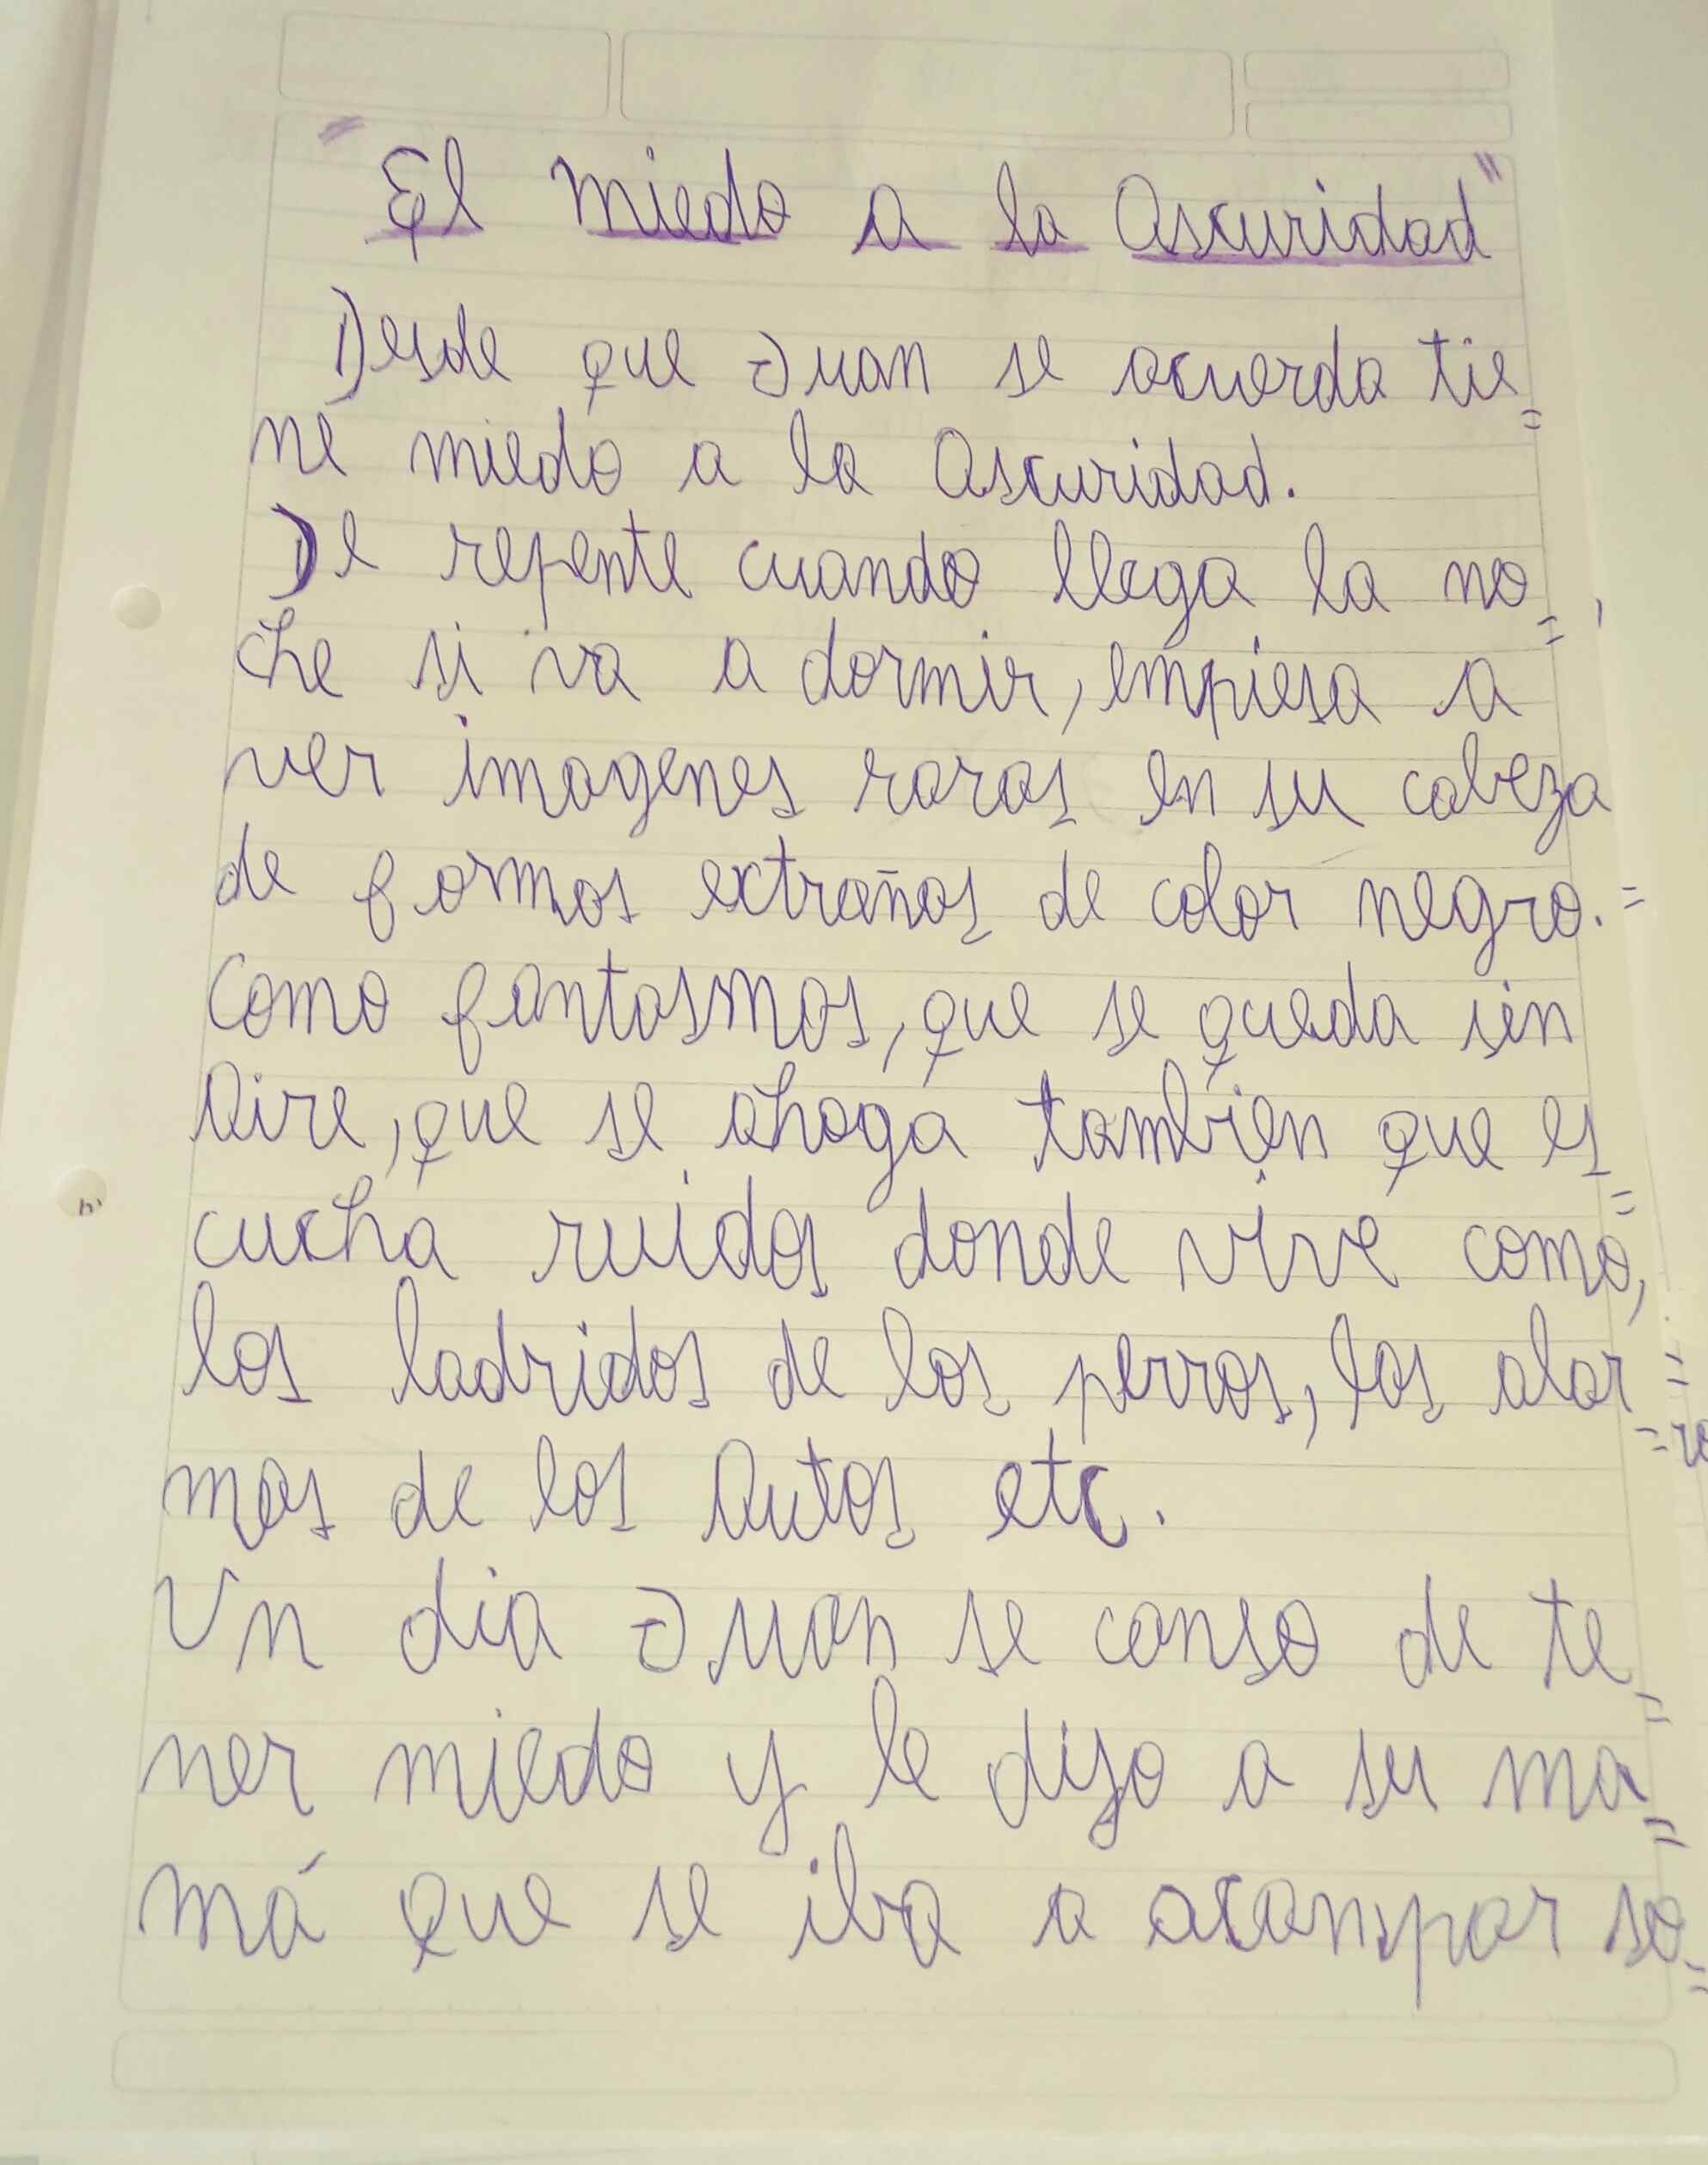 "El miedo a la Oscuridad"
Desde que Juan se acuerda tie=
ne miedo a la Oscuridad.
De repente cuando llega la no=
che si va a dormir, empiesa a
ver imagenes raras en su cabeza
de formas extrañas de color negro.=
Como fantasmas, que se queda sin
aire, que se ahoga tambien que es=
cucha ruidos donde vive como,
los ladridos de los perros, las alar=
mas de los autos etc.
Un dia Juan se canso de te=
ner miedo y le dijo a su ma=
má que se iba a acampar so=